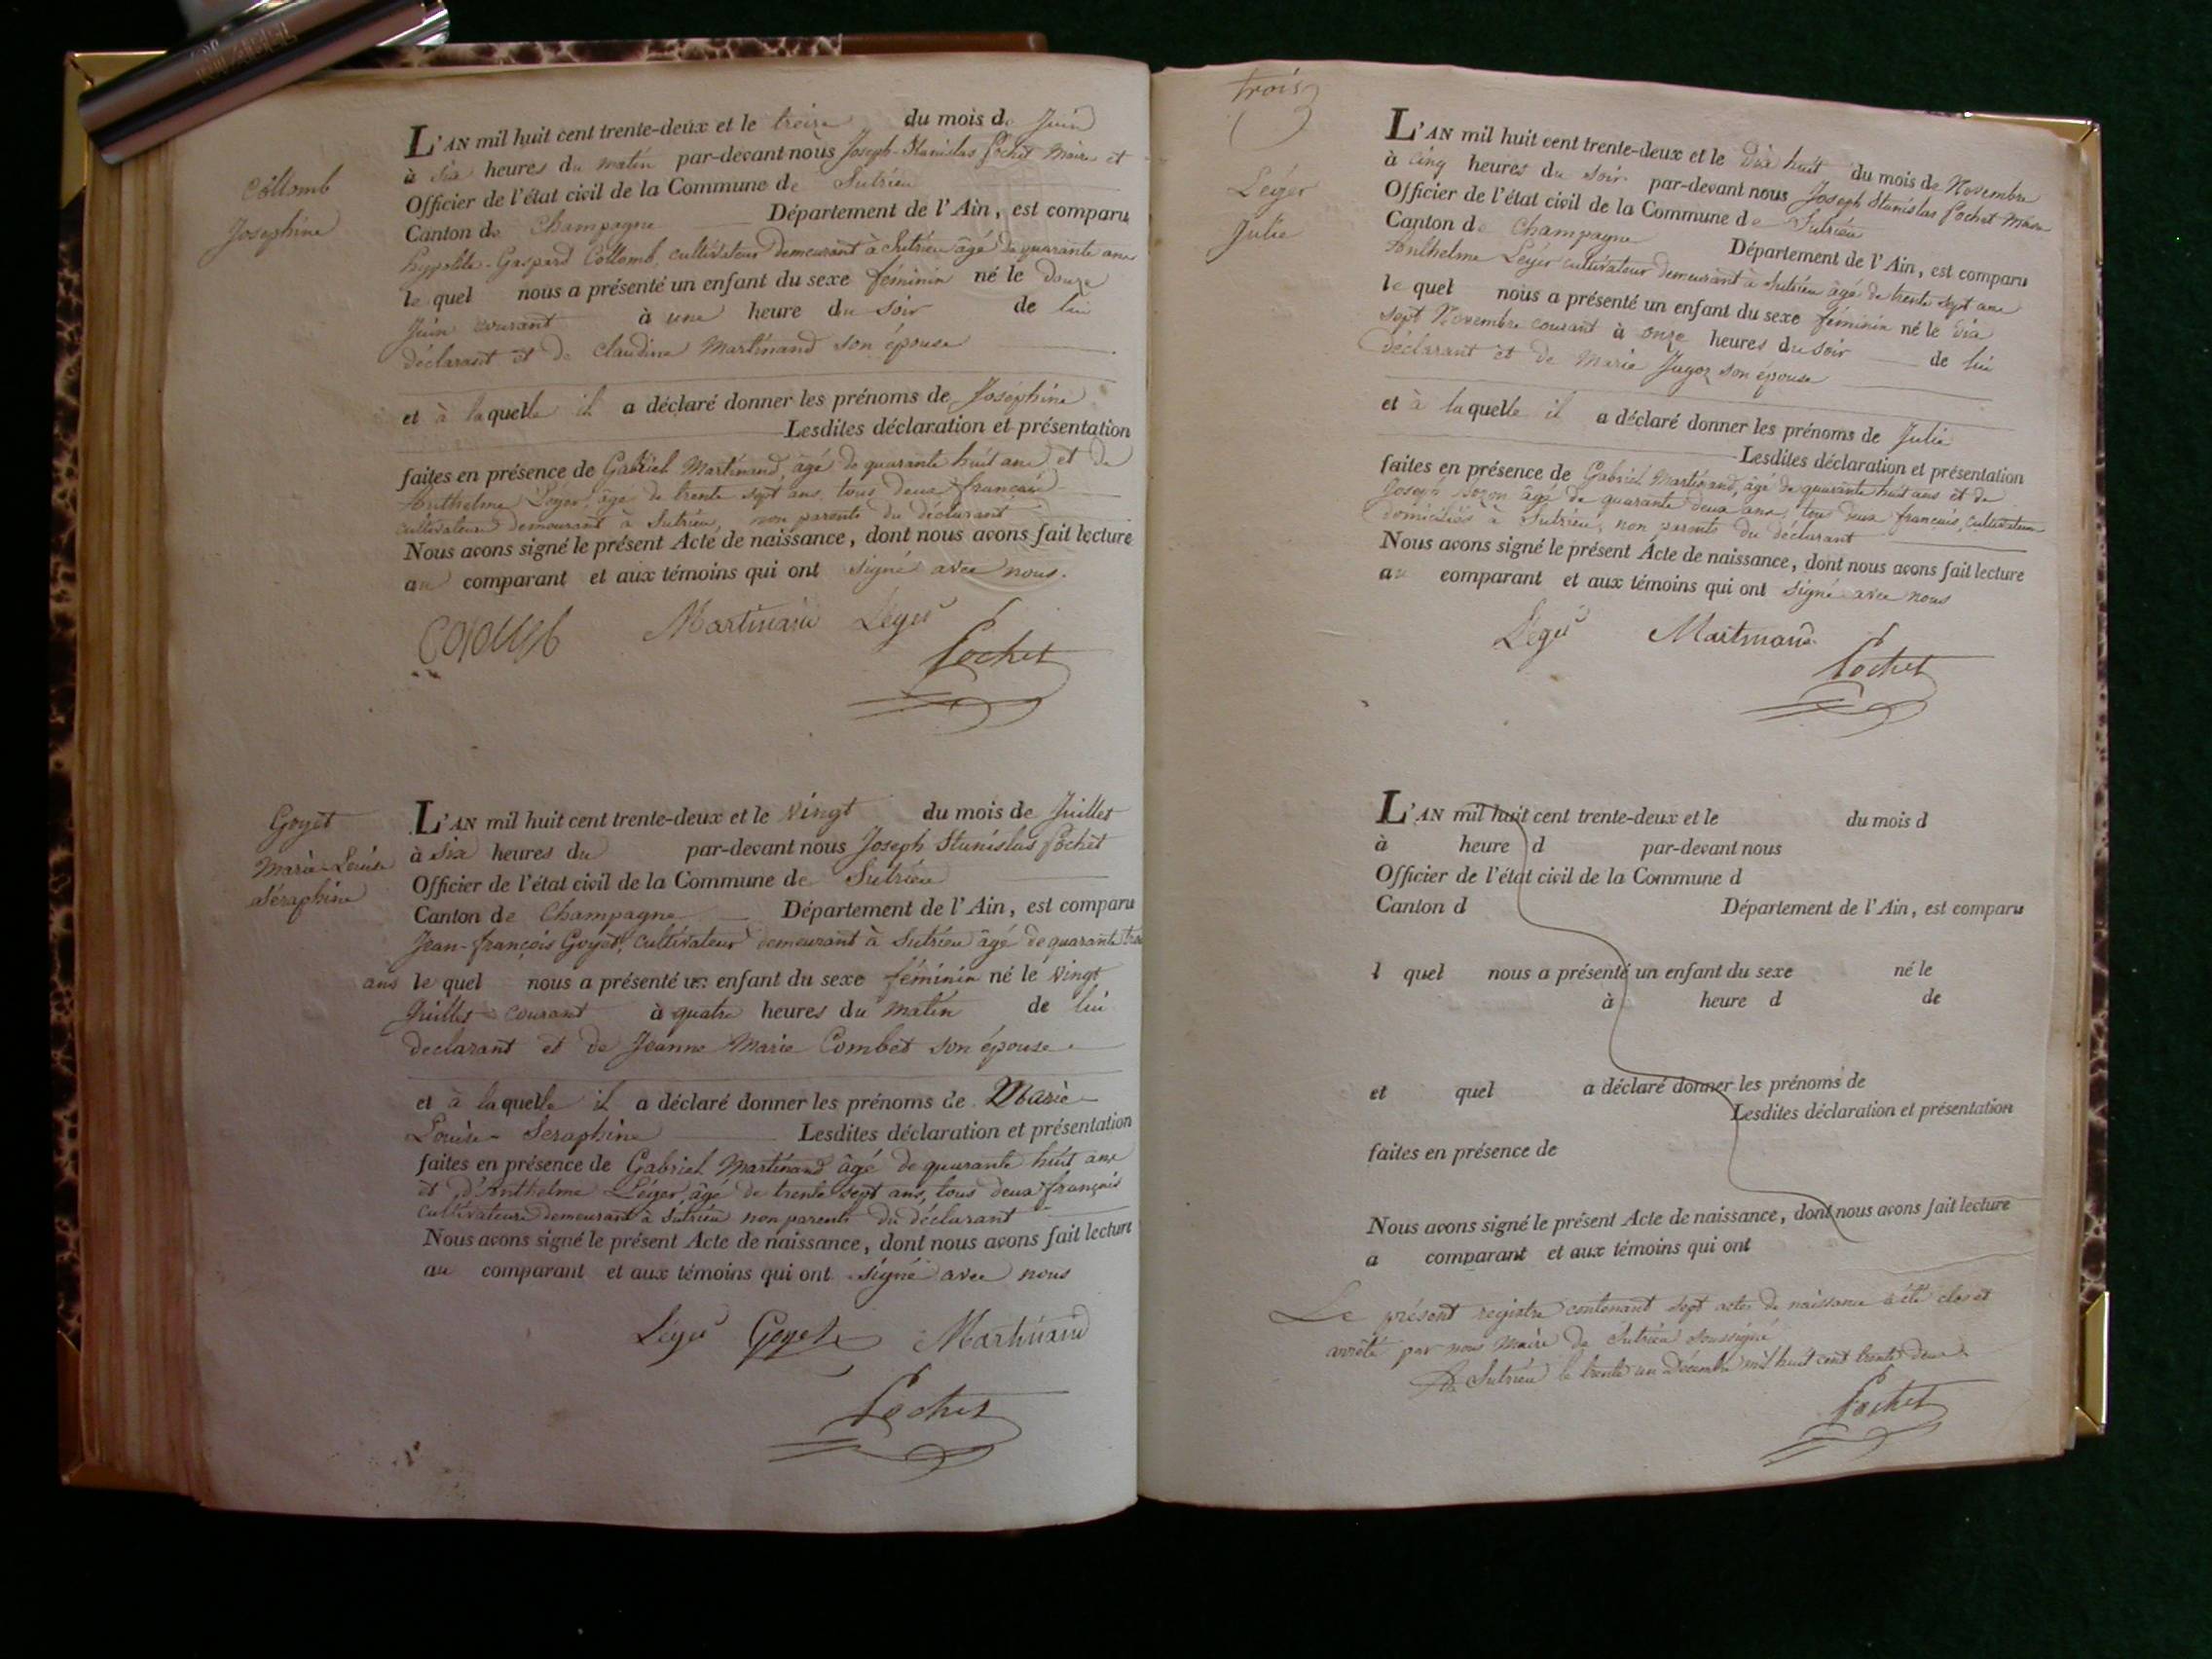 Collomb
Josephine
L'AN mil huit cent trente-deux et le treize du mois de Juin
à six heures du matin par-devant nous Joseph-Stanislas Pochet Maire et
Officier de l'état civil de la Commune de Sutrieu
Canton de Champagne Département de l'Ain, est comparu
hyppolite-Gaspard Collomb, cultivateur demeurant à Sutrieu âgé de quarante ans
lequel nous a présenté un enfant du sexe féminin né le douze
Juin courant à une heure du soir de lui
déclarant et de Claudine Martinand son épouse
et à laquelle il a déclaré donner les prénoms de Joséphine
Lesdites déclaration et présentation
faites en présence de Gabriel Martinand, âgé de quarante huit ans et de
Anthelme Léger, âgé de trente sept ans, tous deux français
cultivateurs demeurant à Sutrieu, non parents du déclarant
Nous avons signé le présent Acte de naissance, dont nous avons fait lecture
au comparant et aux témoins qui ont signé avec nous.
Martinand Léger
Pochet
Goyet
Marie-Louise
Séraphine
L'AN mil huit cent trente-deux et le vingt du mois de Juillet
à six heures du par-devant nous Joseph Stanislas Pochet
Officier de l'état civil de la Commune de Sutrieu
Canton de Champagne Département de l'Ain, est comparu
Jean-françois Goyet, cultivateur demeurant à Sutrieu âgé de quarante trois
ans lequel nous a présenté un enfant du sexe féminin né le vingt
Juillet courant à quatre heures du matin de lui
déclarant et de Jeanne Marie Combet son épouse
et à laquelle il a déclaré donner les prénoms de Marie
Louise Seraphine Lesdites déclaration et présentation
faites en présence de Gabriel Martinand âgé de quarante huit ans
et d'Anthelme Léger, âgé de trente sept ans, tous deux français
cultivateurs demeurant à Sutrieu non parents du déclarant
Nous avons signé le présent Acte de naissance, dont nous avons fait lecture
au comparant et aux témoins qui ont signé avec nous
Léger Goyet Martinand
Pochet
trois
3
Léger
Julie
L'AN mil huit cent trente-deux et le dix huit du mois de Novembre
à cinq heures du soir par-devant nous Joseph Stanislas Pochet Maire
Officier de l'état civil de la Commune de Sutrieu
Canton de Champagne Département de l'Ain, est comparu
Anthelme Léger cultivateur demeurant à Sutrieu âgé de trente sept ans
lequel nous a présenté un enfant du sexe féminin né le dix
sept Novembre courant à onze heures du soir de lui
déclarant et de Marie son épouse
et à laquelle il a déclaré donner les prénoms de Julie
Lesdites déclaration et présentation
faites en présence de Gabriel Martinand, âgé de quarante huit ans et de
Joseph âgé de quarante deux ans, tous deux français, cultivateurs
domiciliés à Sutrieu, non parents du déclarant
Nous avons signé le présent Acte de naissance, dont nous avons fait lecture
au comparant et aux témoins qui ont signé avec nous
Léger Martinand
Pochet
L'AN mil huit cent trente-deux et le du mois d
à heure d par-devant nous
Officier de l'état civil de la Commune d
Canton d Département de l'Ain, est comparu
l quel nous a présenté un enfant du sexe né le
à heure d de
et quel a déclaré donner les prénoms de
Lesdites déclaration et présentation
faites en présence de
Nous avons signé le présent Acte de naissance, dont nous avons fait lecture
a comparant et aux témoins qui ont
Le présent registre contenant sept actes de naissance a été clos et
arrêté par nous Maire de Sutrieu soussigné
A Sutrieu le trente un Décembre mil huit cent trente deux
Pochet